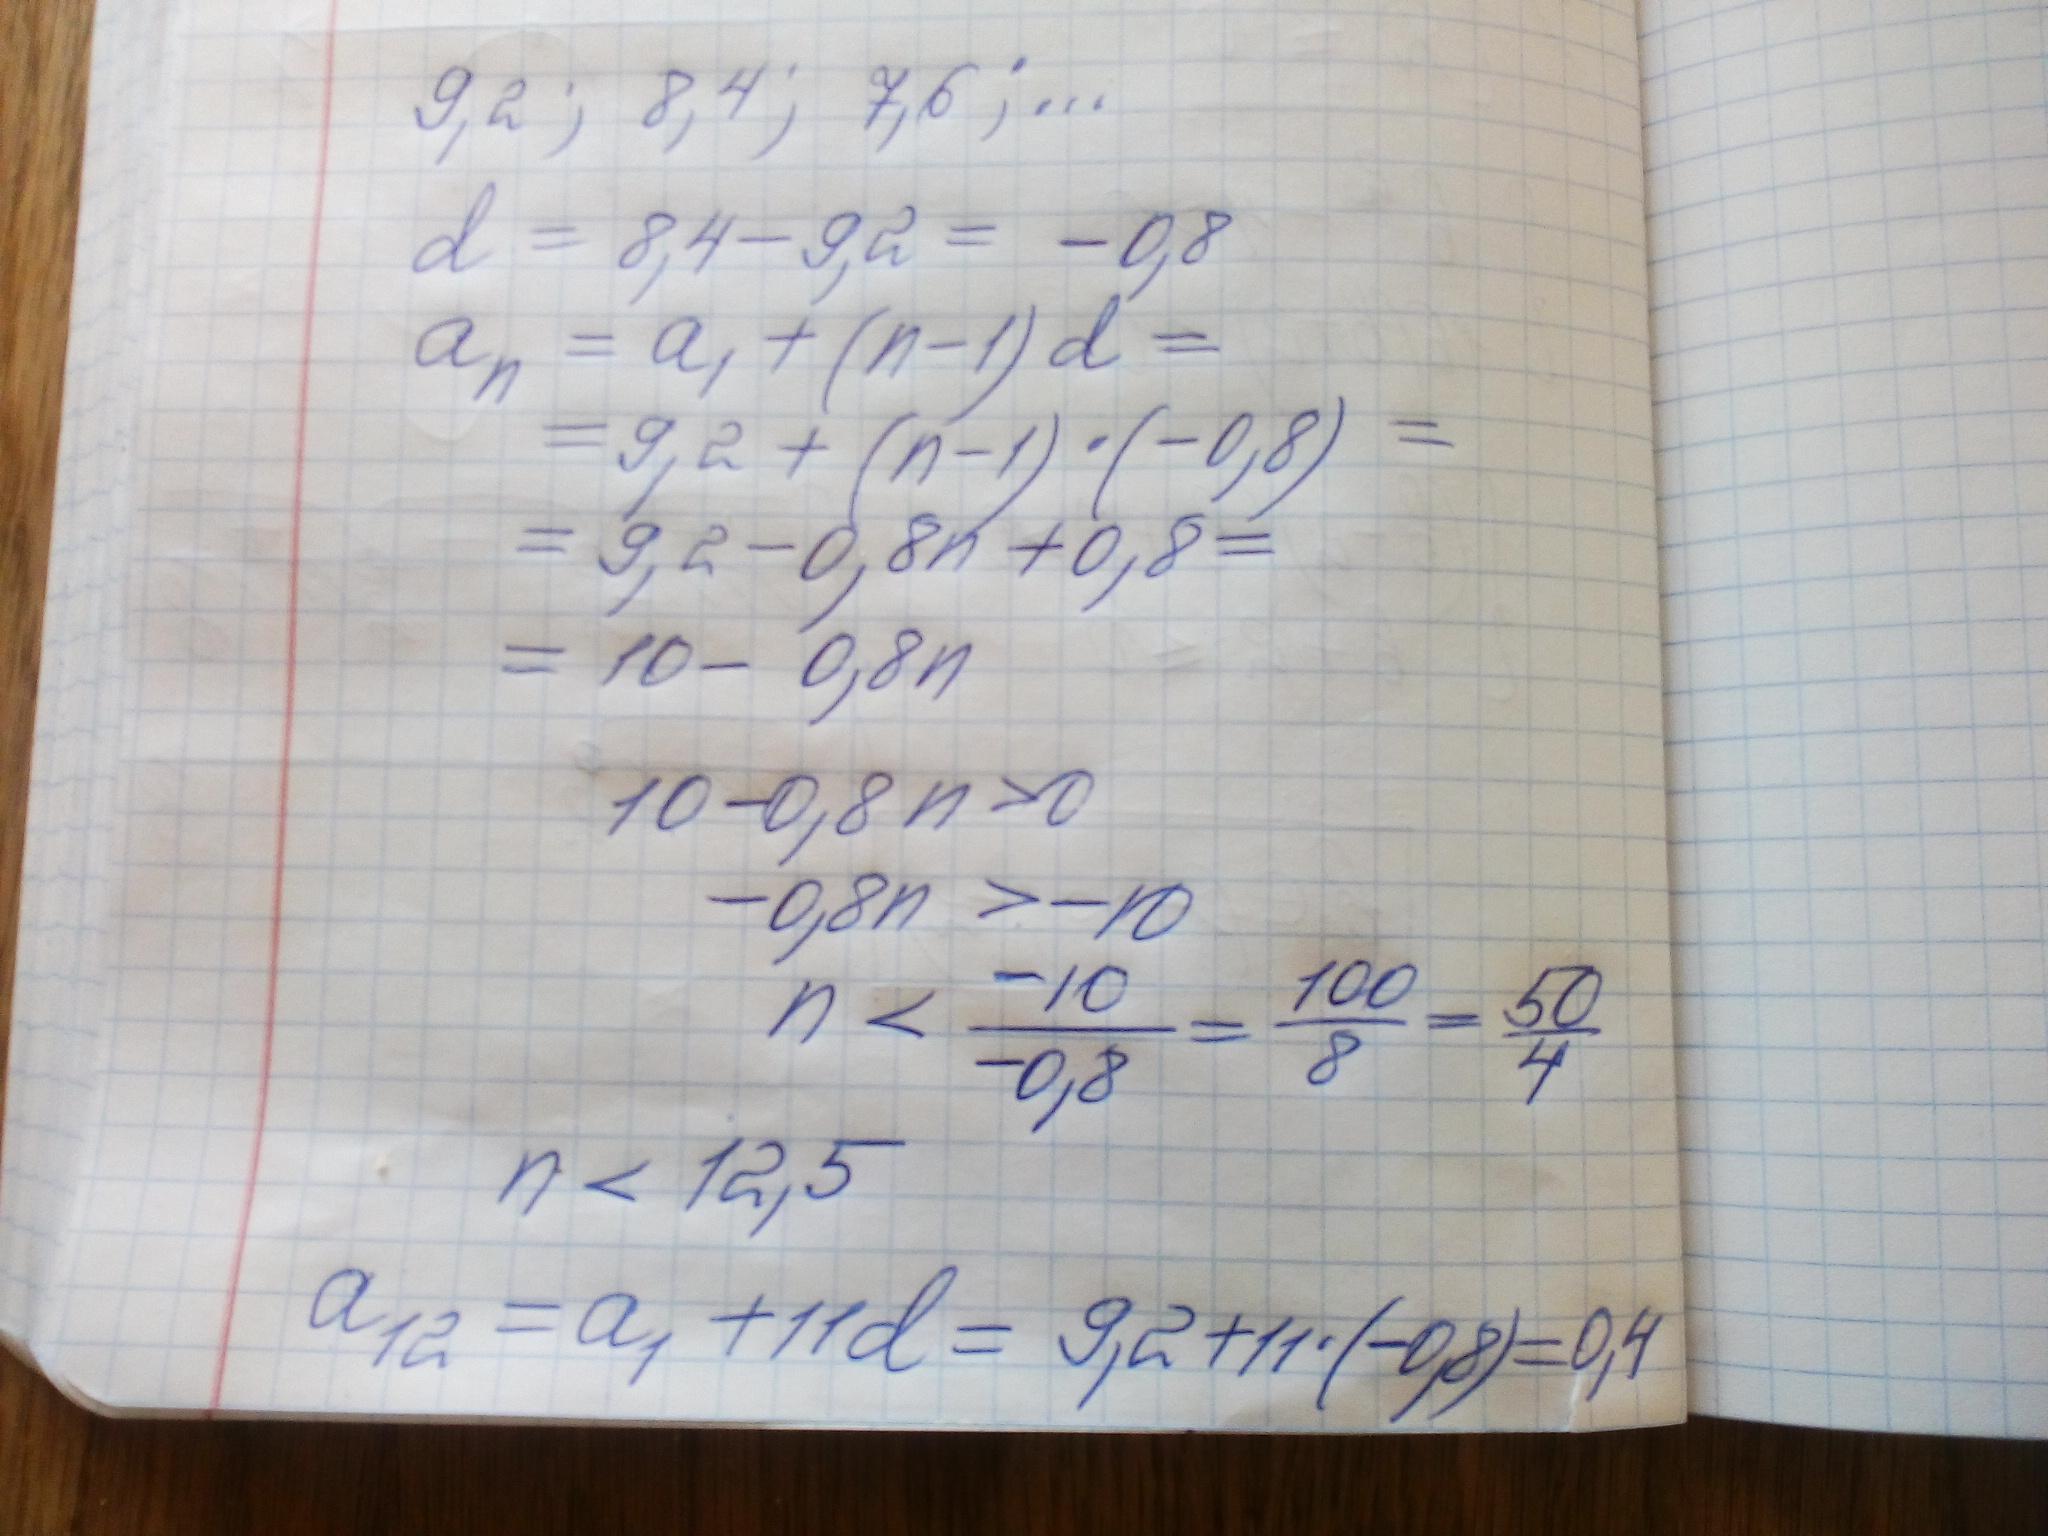 9,2; 8,4; 7,6; ...
d = 8,4 - 9,2 = -0,8
aₙ = a₁ + (n-1)d =
= 9,2 + (n-1)·(-0,8) =
= 9,2 - 0,8n + 0,8 =
= 10 - 0,8n
10 - 0,8n > 0
-0,8n > -10
n < -10/-0,8 = 100/8 = 50/4
n < 12,5
a₁₂ = a₁ + 11d = 9,2 + 11·(-0,8) = 0,4